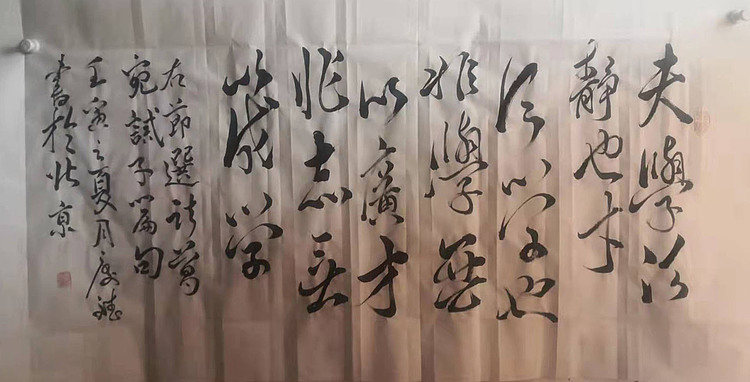 夫學須
靜也才
須學也
非學無
以廣才
非志無
以成學
右節選諸葛
亮誡子篇句
壬寅之夏月
書於北京